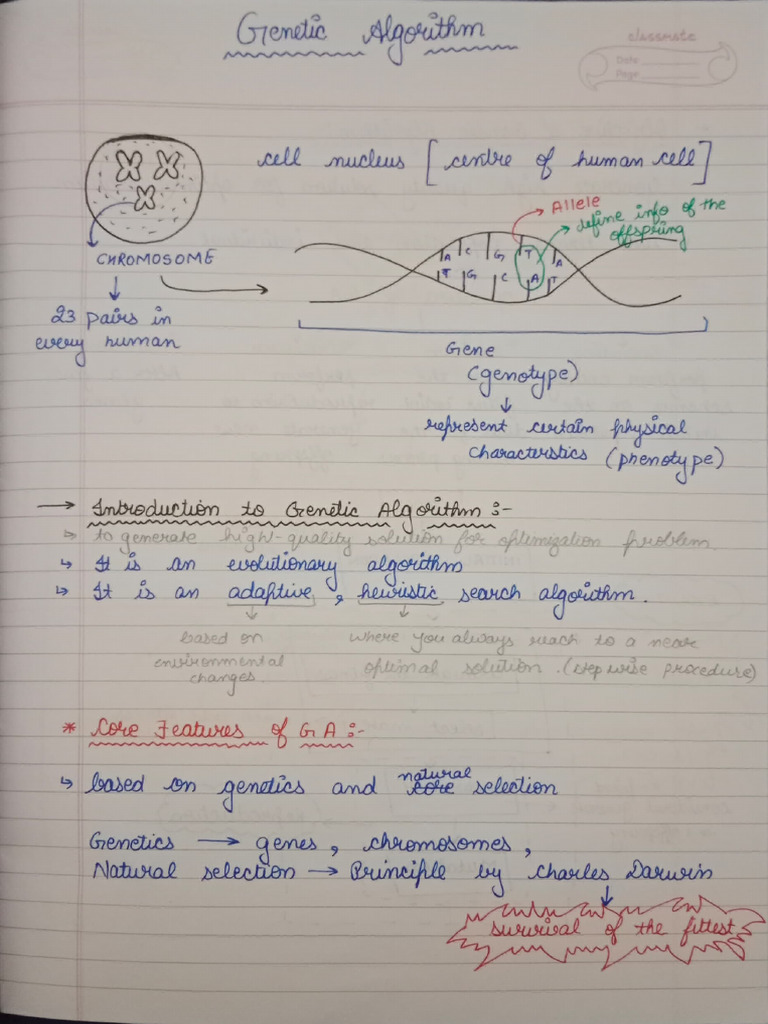 Genetic Algorithm
classmate
Date
Page
cell nucleus [centre of human cell]
Allele
define info of the
offspring
A C G T A
T G C A T
CHROMOSOME
23 pairs in
every human
Gene
(genotype)
represent certain physical
characteristics (phenotype)
→ Introduction to Genetic Algorithm :-
↳ to generate high-quality solution for optimization problem.
↳ It is an evolutionary algorithm
↳ It is an adaptive, heuristic search algorithm.
based on
environmental
changes.
where you always reach to a near
optimal solution. (step wise procedure)
* Core Features of GA :-
↳ based on genetics and natural selection
Genetics → genes, chromosomes,
Natural selection → Principle by Charles Darwin
survival of the fittest